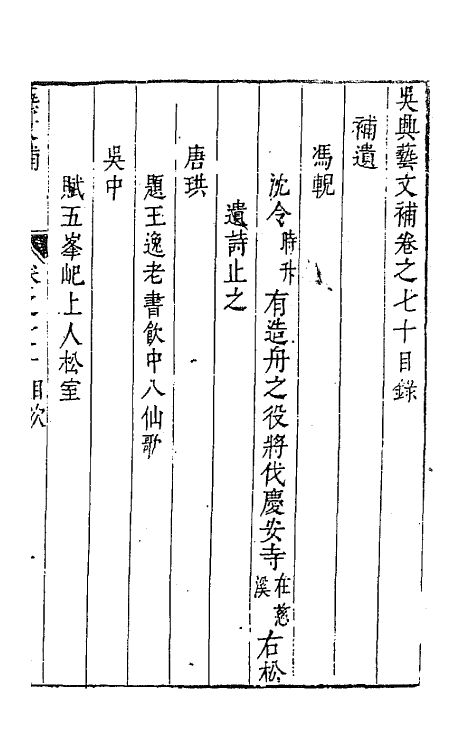 吳興藝文補卷之七十目錄
補遺
馮
沈令時升有造舟之役將伐慶安寺在慈溪右松
遺詩止之
唐珙
題王逸老書飲中八仙歌
吳中
賦五峯屺上人松室
藝文補 卷之七十 目次